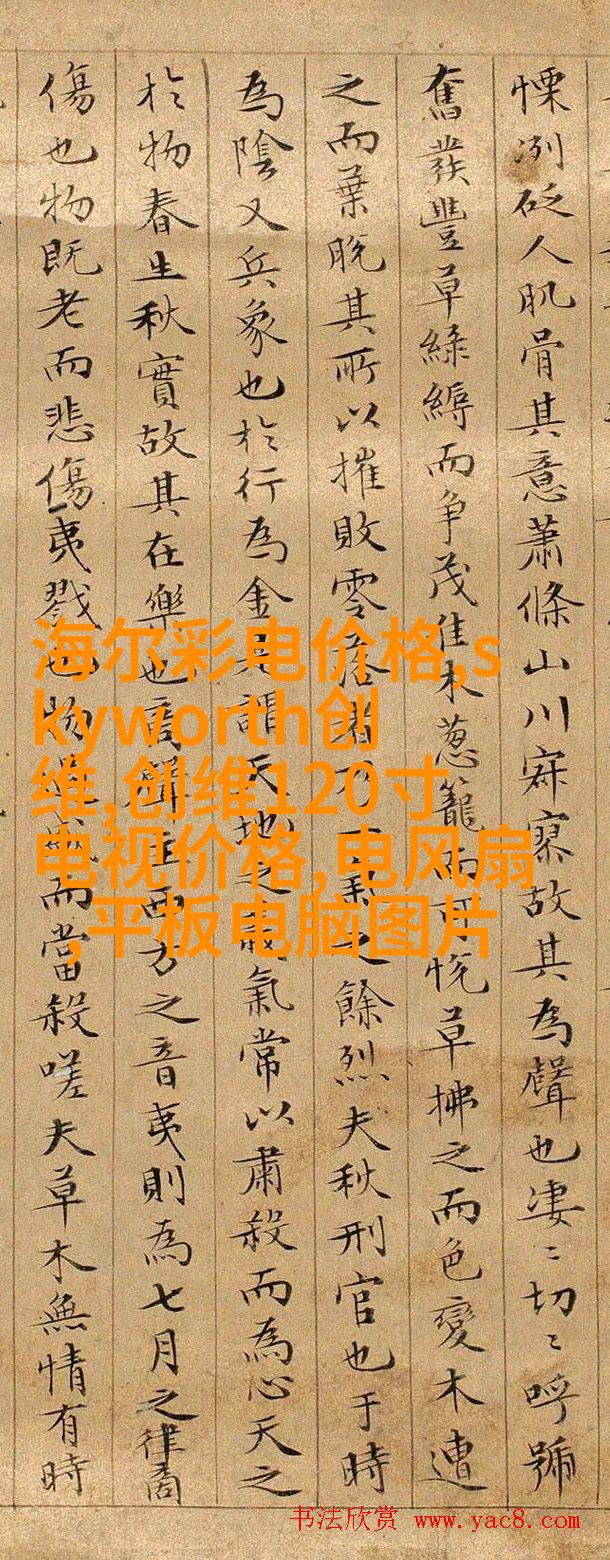 慄洌砭人肌骨其意蕭條山川寂寥故其為聲也淒〻切〻呼號
奮發豐草綠縟而争茂佳木蔥籠而可悅草拂之而色變木遭
之而葉脫其所以摧敗零落者乃氣之餘烈夫秋刑官也于時
為陰又兵象也於行為金是謂天地之義氣常以肅殺而為心天之
於物春生秋實故其在樂也商聲主西方之音夷則為七月之律商
傷也物既老而悲傷夷戮也物過盛而當殺嗟夫草木無情有時
海尔彩电价格,s
kyworth创
维,创维120寸
电视价格,电风扇
,平板电脑图片
书法欣赏 www.yac8.com